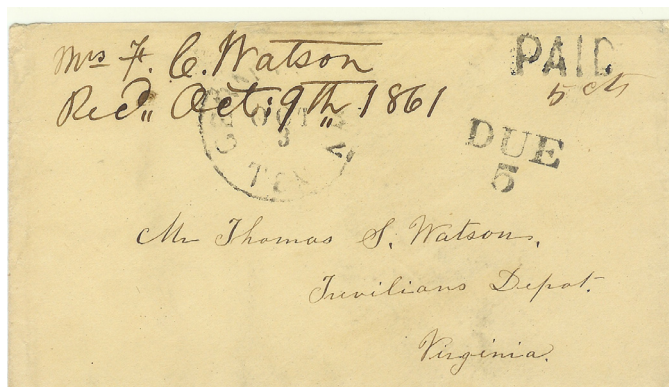 Mrs F. C. Watson
Recd,, Oct; 9th,, 1861
PAID
5 cts
OCT
3
TEX
DUE
5
Mr Thomas S. Watson,
Trevilians Depot.
Virginia.